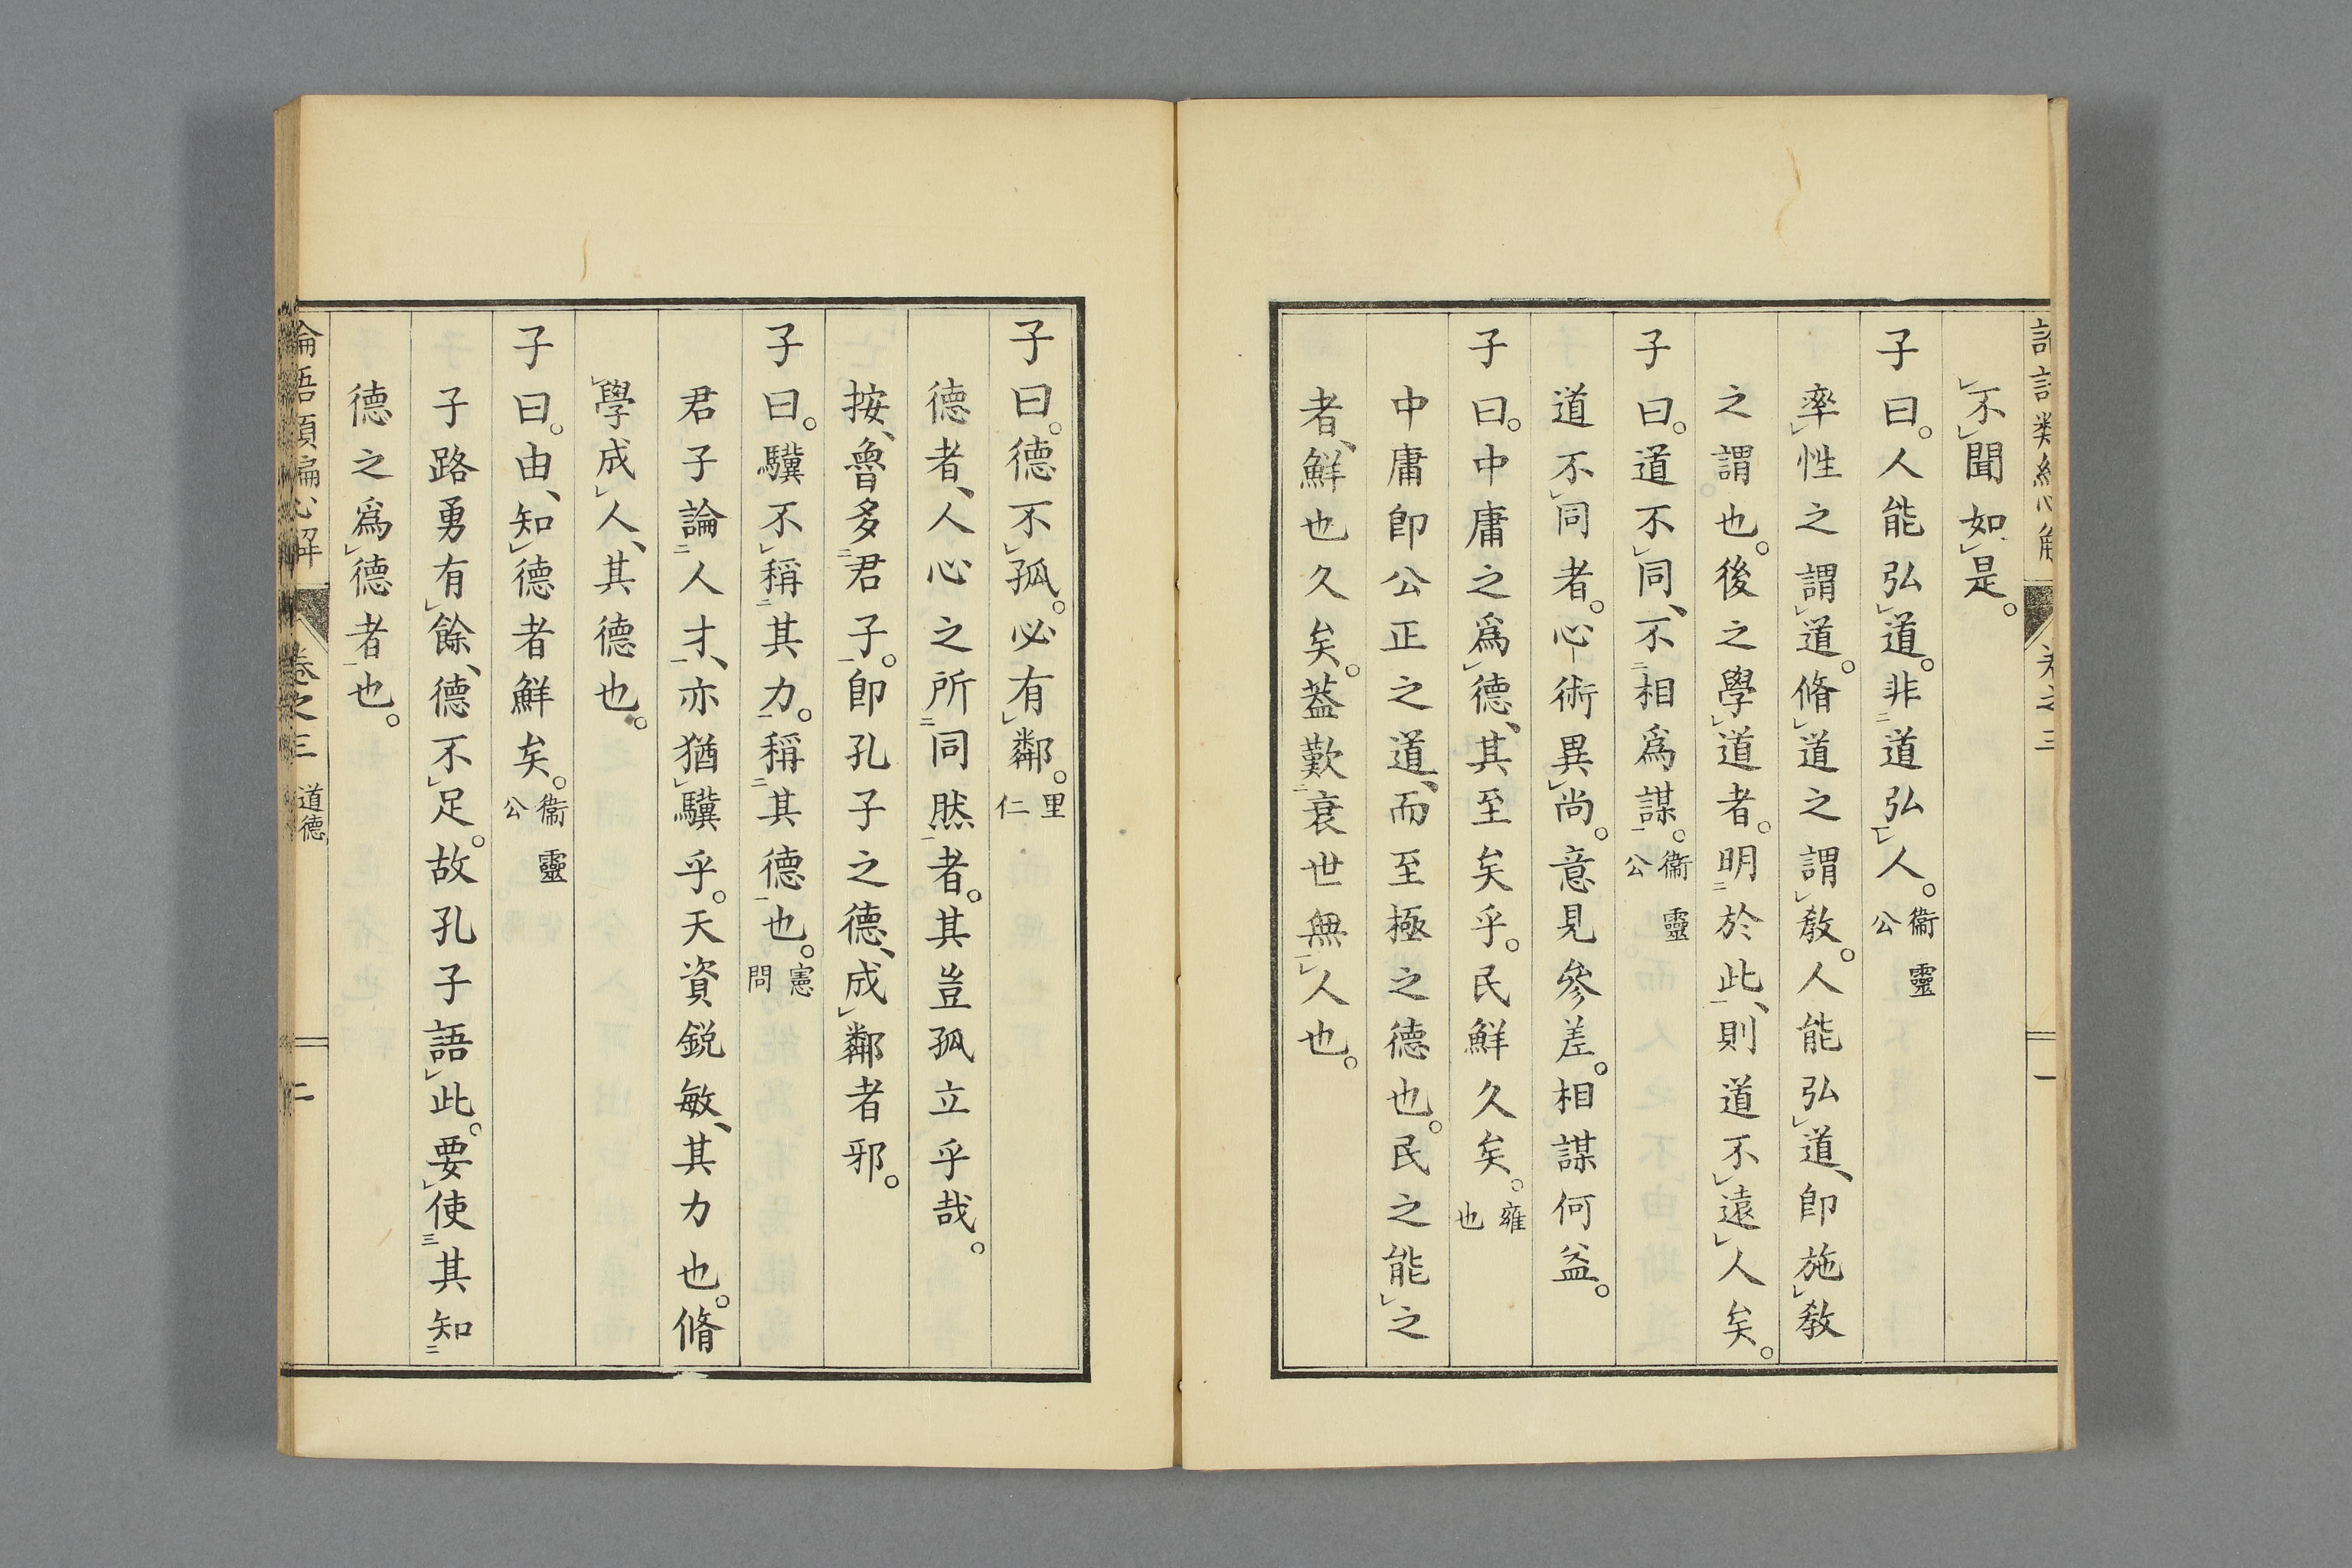 不聞如是。
子曰。人能弘道。非道弘人。衞靈公
率性之謂道。脩道之謂敎。人能弘道、卽施敎
之謂也。後之學道者。明於此、則道不遠人矣。
子曰。道不同、不相爲謀。衞靈公
道不同者。心術異尚。意見參差。相謀何益。
子曰。中庸之爲德、其至矣乎。民鮮久矣。雍也
中庸卽公正之道、而至極之德也。民之能之
者、鮮也久矣。葢歎衰世無人也。
子曰。德不孤。必有鄰。里仁
德者、人心之所同然者。其豈孤立乎哉。
按、魯多君子。卽孔子之德、成鄰者邪。
子曰。驥不稱其力。稱其德也。憲問
君子論人才、亦猶驥乎。天資銳敏、其力也。脩
學成人、其德也。
子曰。由、知德者鮮矣。衞靈公
子路勇有餘、德不足。故孔子語此。要使其知
德之爲德者也。
論語類編心解 卷之三 道德 二